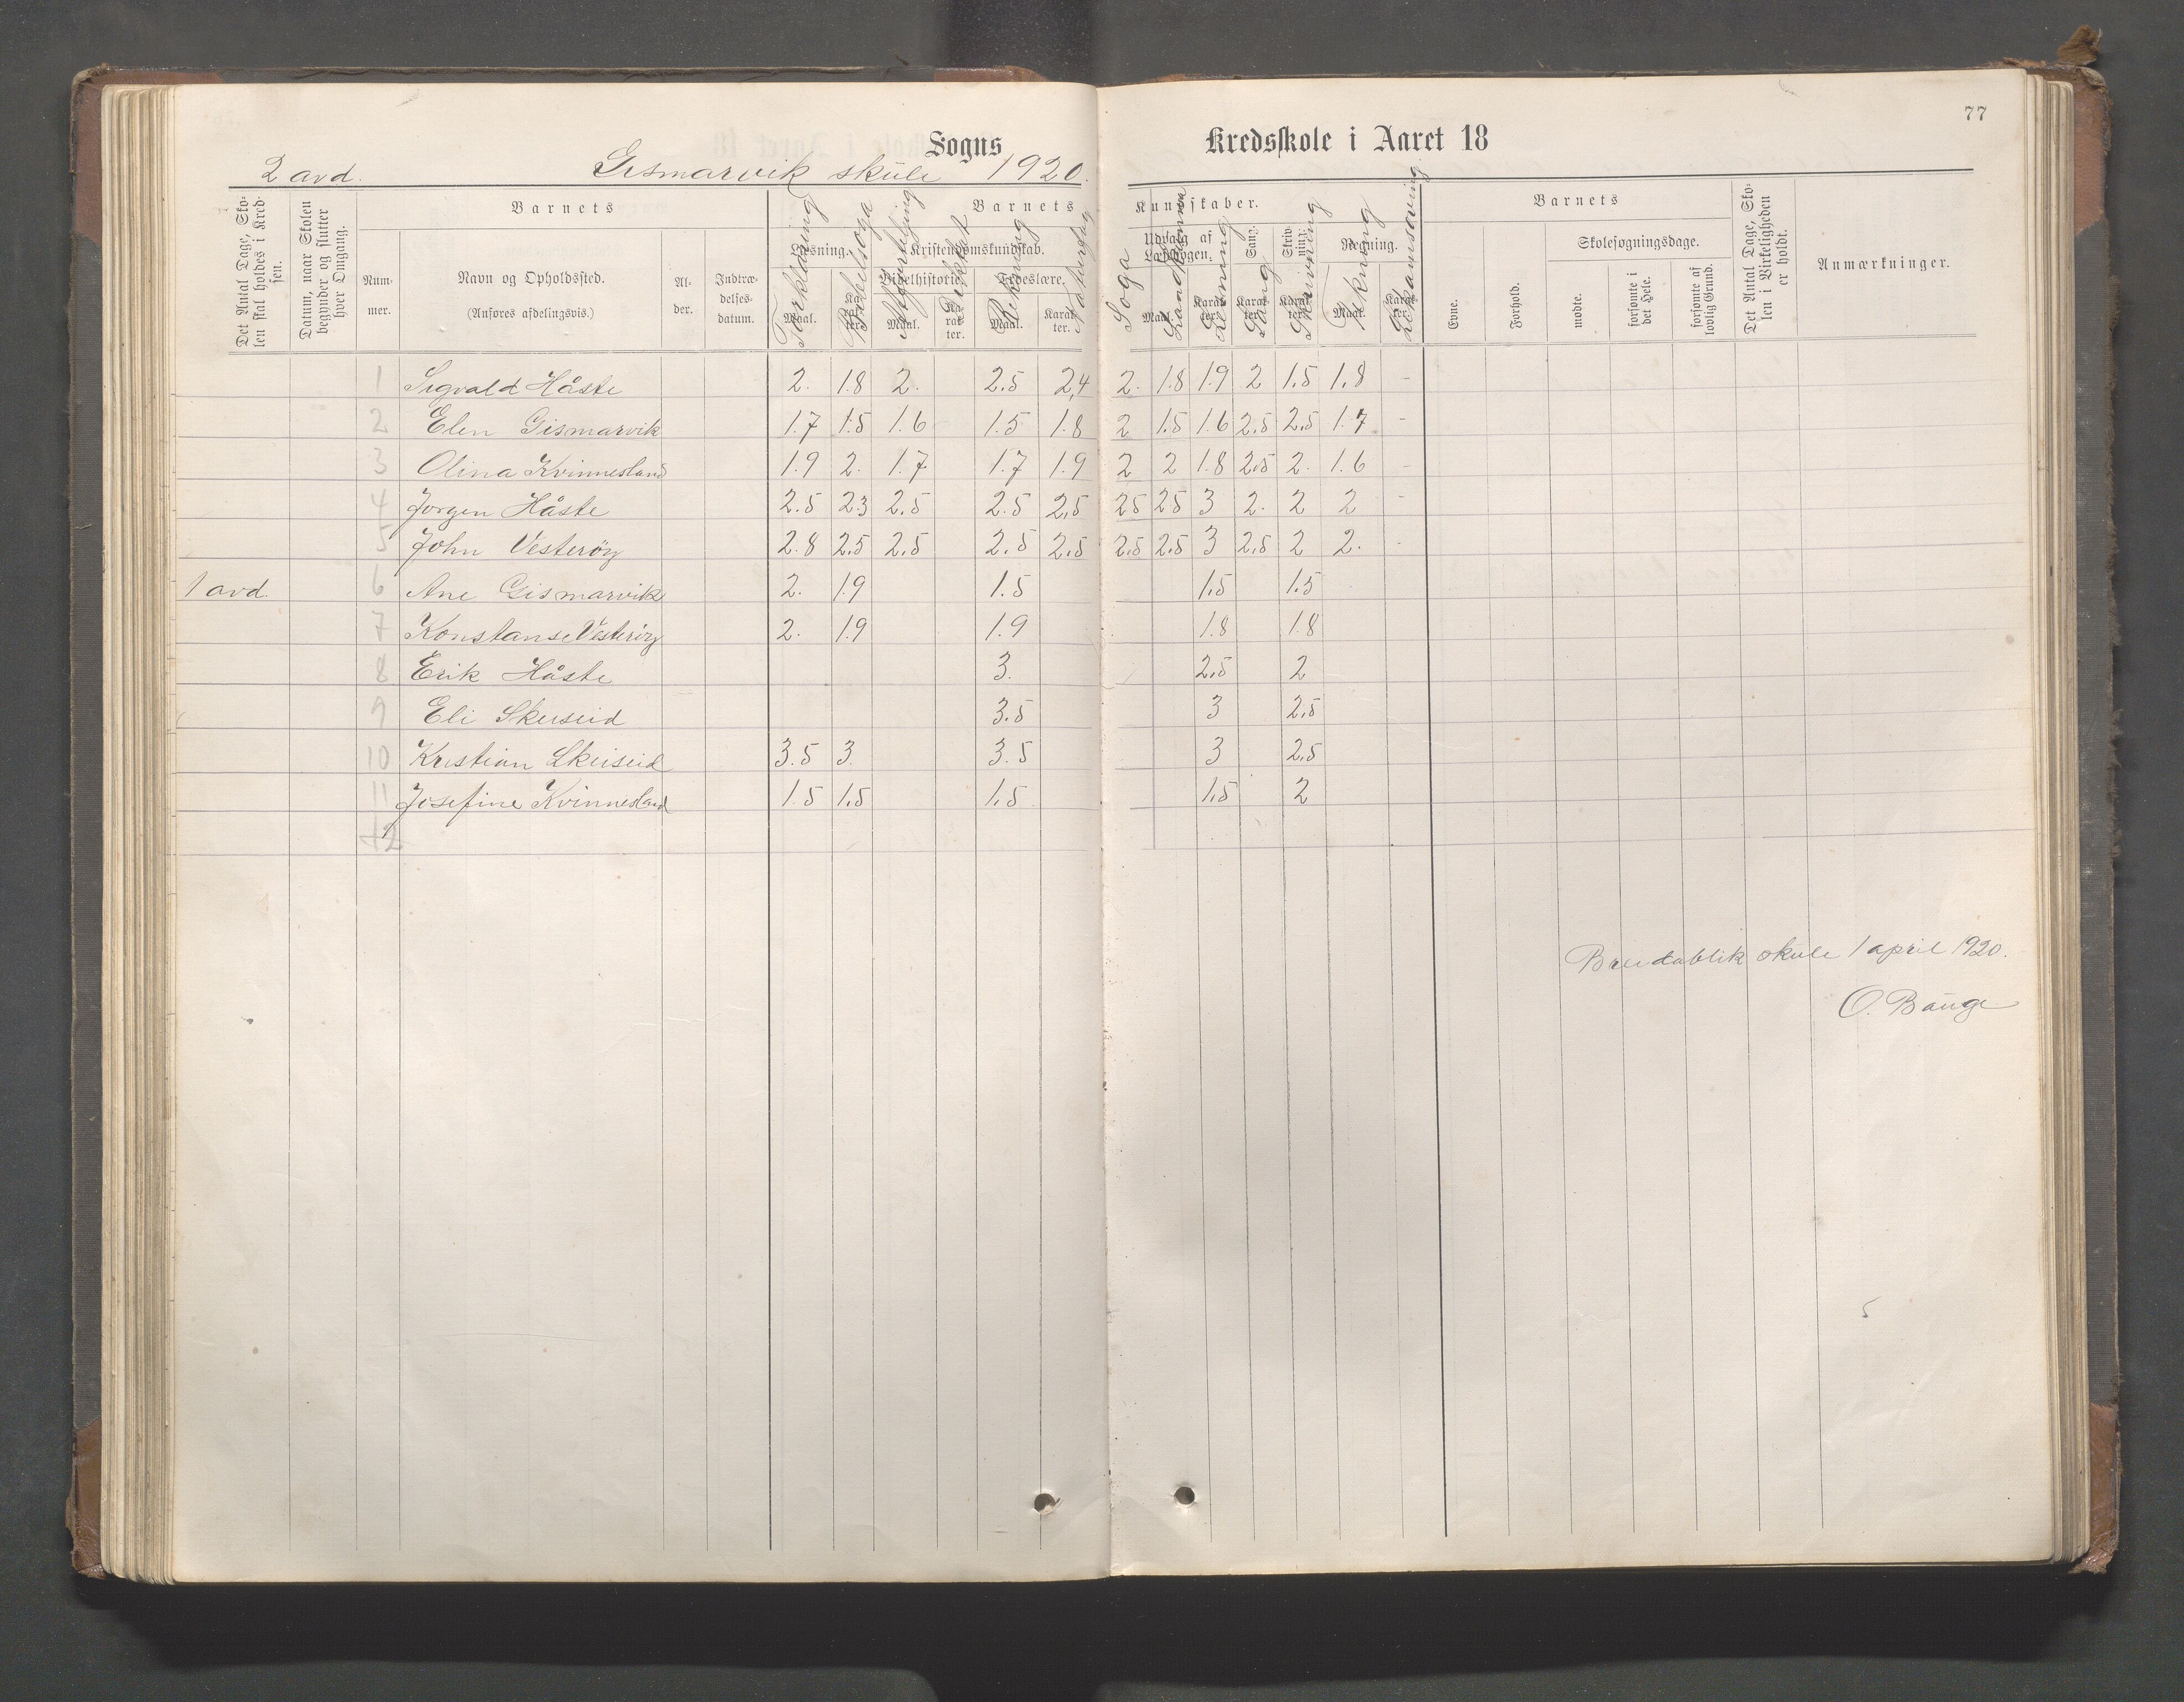 77
Sogns
Kredsskole i Aaret 18
2 avd.
Gismarvik skule 1920.
Det Antal Dage, Skolen skal holdes i Kredsen.
Datum, naar Skolen begynder og slutter hver Omgang.
Barnets
Nummer.
Navn og Opholdssted.
(Anføres afdelingsvis.)
Alder.
Indtrædelsesdatum.
Barnets
Kundskaber.
Læsning.
Kristendomskundskab.
Bibelhistorie.
Troeslære.
Maal.
Karakter.
Maal.
Karakter.
Maal.
Karakter.
Forklåring
Bibelsoga
Rekning
Udvalg af Læsebogen.
Sang.
Skrivning.
Regning.
Maal.
Karakter.
Karakter.
Karakter.
Maal.
Karakter.
Soga
Sang
Skrivning
Tekning
Likamsøving
Barnets
Evne.
Forhold.
Skolesøgningsdage.
mødte.
forsømte i det Hele.
forsømte af lovlig Grund.
Det Antal Dage, Skolen i Virkeligheden er holdt.
Anmærkninger.
1 Sigvald Håste 2. 1.8 2. 2.5 2,4 2. 1.8 1.9 2 1.5 1.8 -
2 Elen Gismarvik 1.7 1.5 1.6 1.5 1.8 2 1.5 1.6 2.5 2.5 1.7 -
3 Olina Kvinnesland 1.9 2. 1.7 1.7 1.9 2 2 1.8 2.5 2. 1.6 -
4 Jorgen Håste 2.5 2.3 2.5 2.5 2,5 25 25 3 2. 2 2 -
5 John Vesterøy 2.8 2.5 2.5 2.5 2.5 2.5 2.5 3 2.5 2 2. -
1 avd. 6 Ane Gismarvik 2. 1.9 1.5 1.5 1.5
7 Konstanse Vesterøy 2. 1.9 1.9 1.8 1.8
8 Erik Håste 3. 2.5 2
9 Eli Skeiseid 3.5 3 2.5
10 Kristian Skeiseid 3.5 3. 3.5 3 2.5
11 Josefine Kvinnesland 1.5 1.5 1.5 1.5 2
12
Breidablik skule 1 april 1920.
O. Bauge